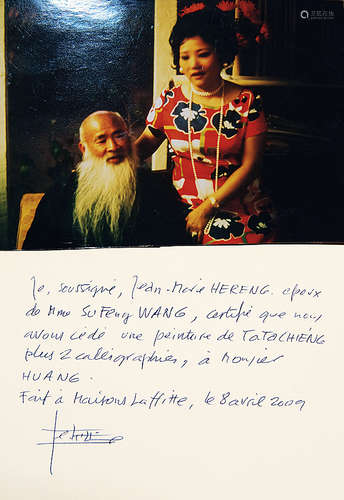 Je, soussigné, Jean-Marie HERENG. epoux
de Mme SuFeng WANG, certifie que nous
avons cédé une peinture de TaTaCHIENG
plus 2 calligraphies, à Monsieur
HUANG.
Fait à Maisons Laffitte, le 8 avril 2009